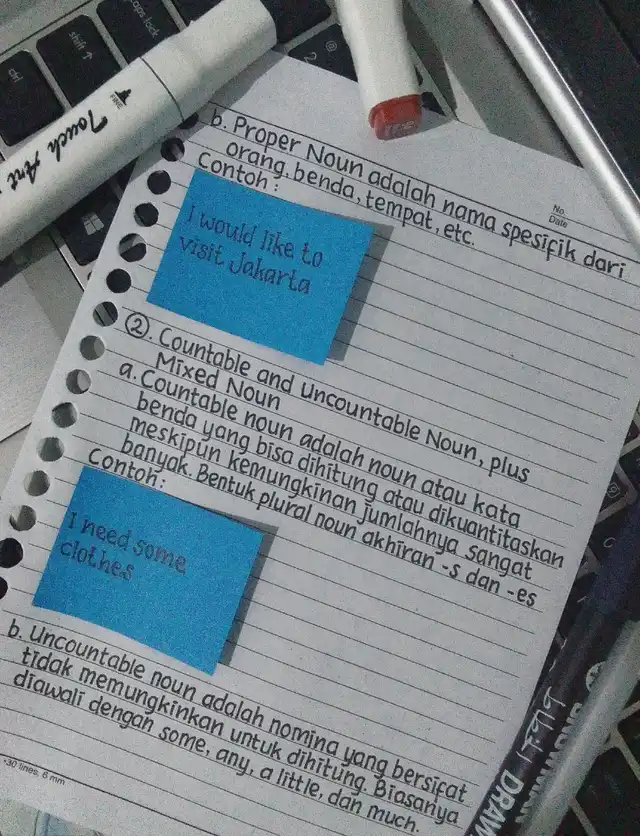 caps lock
shift
ctrl
Touch Art
b. Proper Noun adalah nama spesifik dari
orang, benda, tempat, etc.
Contoh :
No.
Date
i would like to
visit Jakarta
②. Countable and Uncountable Noun, plus
Mixed Noun
a. Countable noun adalah noun atau kata
benda yang bisa dihitung atau dikuantitaskan
meskipun kemungkinan jumlahnya sangat
banyak. Bentuk plural noun akhiran -s dan -es
Contoh:
I need some
clothes
b. Uncountable noun adalah nomina yang bersifat
tidak memungkinkan untuk dihitung. Biasanya
diawali dengan some, any, a little, dan much.
30 lines, 6 mm